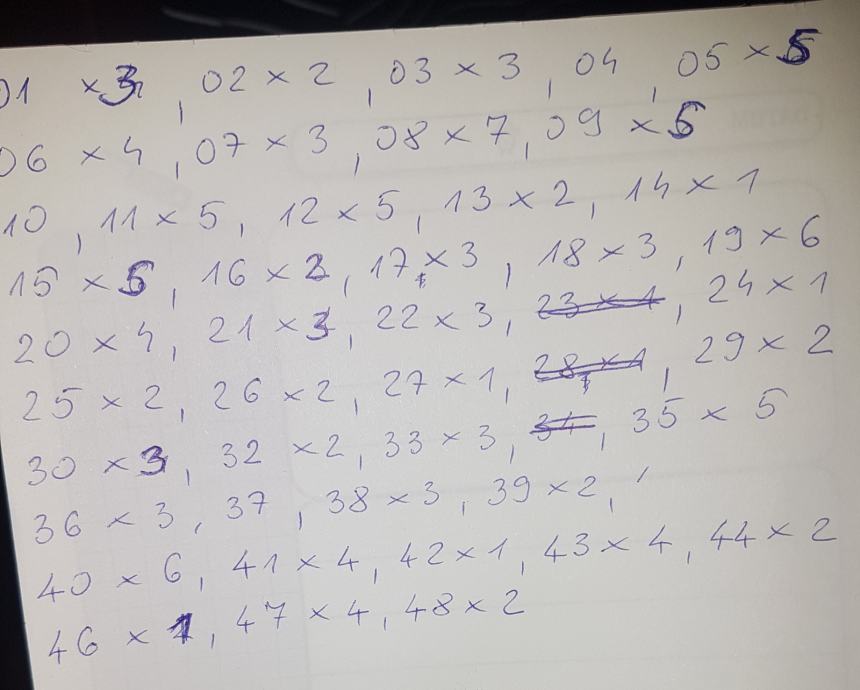 01 × 3, 02 × 2, 03 × 3, 04, 05 × 5
06 × 4, 07 × 3, 08 × 7, 09 × 5
10, 11 × 5, 12 × 5, 13 × 2, 14 × 1
15 × 5, 16 × 2, 17 × 3, 18 × 3, 19 × 6
20 × 4, 21 × 3, 22 × 3, 23 × 1, 24 × 1
25 × 2, 26 × 2, 27 × 1, 28 × 1, 29 × 2
30 × 3, 32 × 2, 33 × 3, 34, 35 × 5
36 × 3, 37, 38 × 3, 39 × 2,
40 × 6, 41 × 4, 42 × 1, 43 × 4, 44 × 2
46 × 1, 47 × 4, 48 × 2